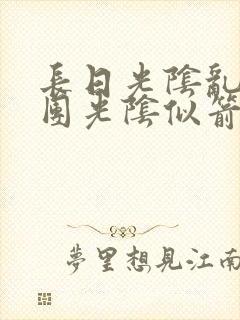 長日光陰亂
園光陰似箭
夢里想見江南